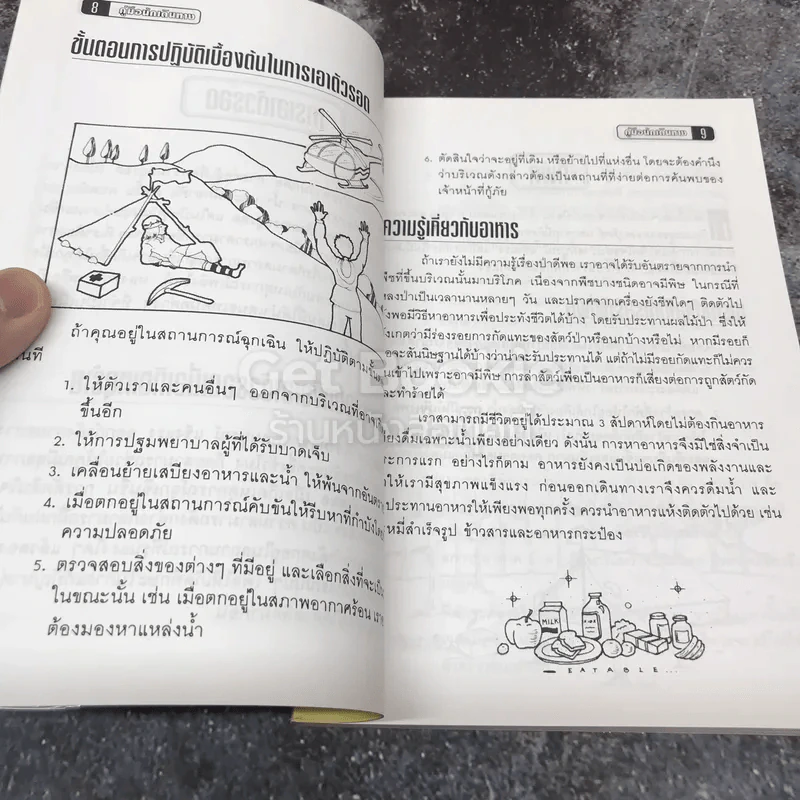 8 คู่มือนักเดินทาง
ขั้นตอนการปฏิบัติเบื้องต้นในการเอาตัวรอด
ถ้าคุณอยู่ในสถานการณ์ฉุกเฉิน ให้ปฏิบัติตามขั้น
นที
1. ให้ตัวเราและคนอื่นๆ ออกจากบริเวณที่อาจ
ขึ้นอีก
2. ให้การปฐมพยาบาลผู้ที่ได้รับบาดเจ็บ
3. เคลื่อนย้ายเสบียงอาหารและน้ำ ให้พ้นจากอันตร
4. เมื่อตกอยู่ในสถานการณ์คับขันให้รีบหาที่กำบัง
ความปลอดภัย
5. ตรวจสอบสิ่งของต่างๆ ที่มีอยู่ และเลือกสิ่งที่จะเป็
ในขณะนั้น เช่น เมื่อตกอยู่ในสภาพอากาศร้อน เรา
ต้องมองหาแหล่งน้ำ
คู่มือนักเดินทาง 9
6. ตัดสินใจว่าจะอยู่ที่เดิม หรือย้ายไปที่แห่งอื่น โดยจะต้องคำนึง
ว่าบริเวณดังกล่าวต้องเป็นสถานที่ที่ง่ายต่อการค้นพบของ
เจ้าหน้าที่กู้ภัย
ความรู้เกี่ยวกับอาหาร
ถ้าเรายังไม่มีความรู้เรื่องป่าดีพอ เราอาจได้รับอันตรายจากการนำ
พืชที่ขึ้นบริเวณนั้นมาบริโภค เนื่องจากพืชบางชนิดอาจมีพิษ ในกรณีที่
ลงป่าเป็นเวลานานหลายๆ วัน และปราศจากเครื่องยังชีพใดๆ ติดตัวไป
งพอมีวิธีหาอาหารเพื่อประทังชีวิตได้บ้าง โดยรับประทานผลไม้ป่า ซึ่งให้
งเกตว่ามีร่องรอยการกัดแทะของสัตว์ป่าหรือนกบ้างหรือไม่ หากมีรอยก็
อจะสันนิษฐานได้บ้างว่าน่าจะรับประทานได้ แต่ถ้าไม่มีรอยกัดแทะก็ไม่ควร
นเข้าไปเพราะอาจมีพิษ การล่าสัตว์เพื่อเป็นอาหารก็เสี่ยงต่อการถูกสัตว์กัด
ะทำร้ายได้
เราสามารถมีชีวิตอยู่ได้ประมาณ 3 สัปดาห์โดยไม่ต้องกินอาหาร
ยงดื่มเฉพาะน้ำเพียงอย่างเดียว ดังนั้น การหาอาหารจึงมิใช่สิ่งจำเป็น
ระการแรก อย่างไรก็ตาม อาหารยังคงเป็นบ่อเกิดของพลังงานและ
ให้เรามีสุขภาพแข็งแรง ก่อนออกเดินทางเราจึงควรดื่มน้ำ และ
ประทานอาหารให้เพียงพอทุกครั้ง ควรนำอาหารแห้งติดตัวไปด้วย เช่น
หมี่สำเร็จรูป ข้าวสารและอาหารกระป๋อง
MILK
EATABLE...
Get Bookie